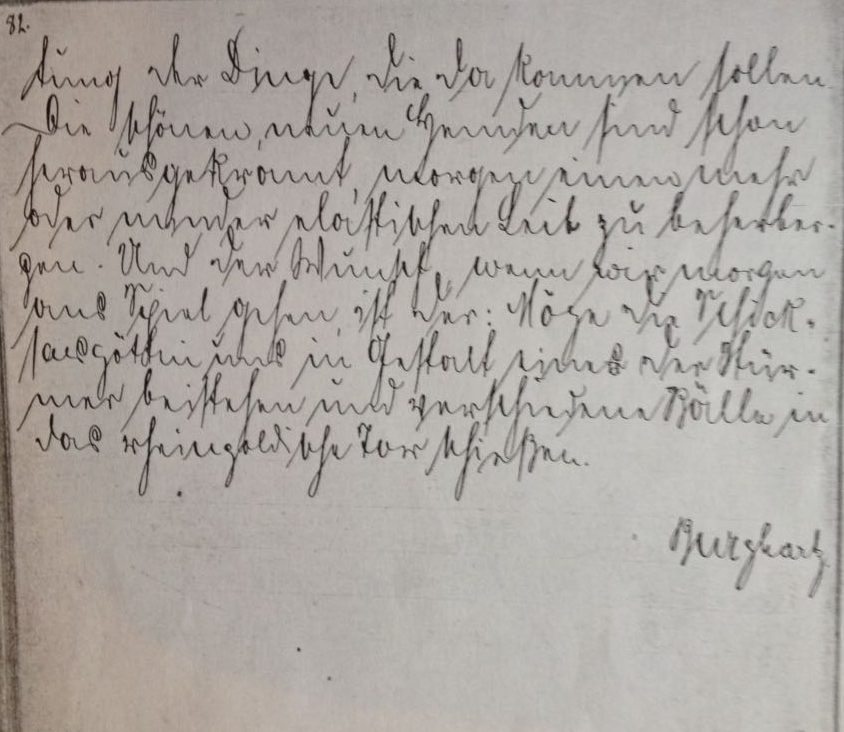 82.
tung der Dinge, die da kommen sollen.
Die schönen, neuen Hemden sind schon
herausgekramt, morgen einen mehr
oder minder elastischen Leib zu beherber-
gen. Und der Wunsch, wenn wir morgen
ans Spiel gehen, ist der: Möge die Schick-
salsgöttin uns in Gestalt eines der Stür-
mer beistehen und verschiedene Bälle in
das rheingoldische Tor schießen.
Burghartz